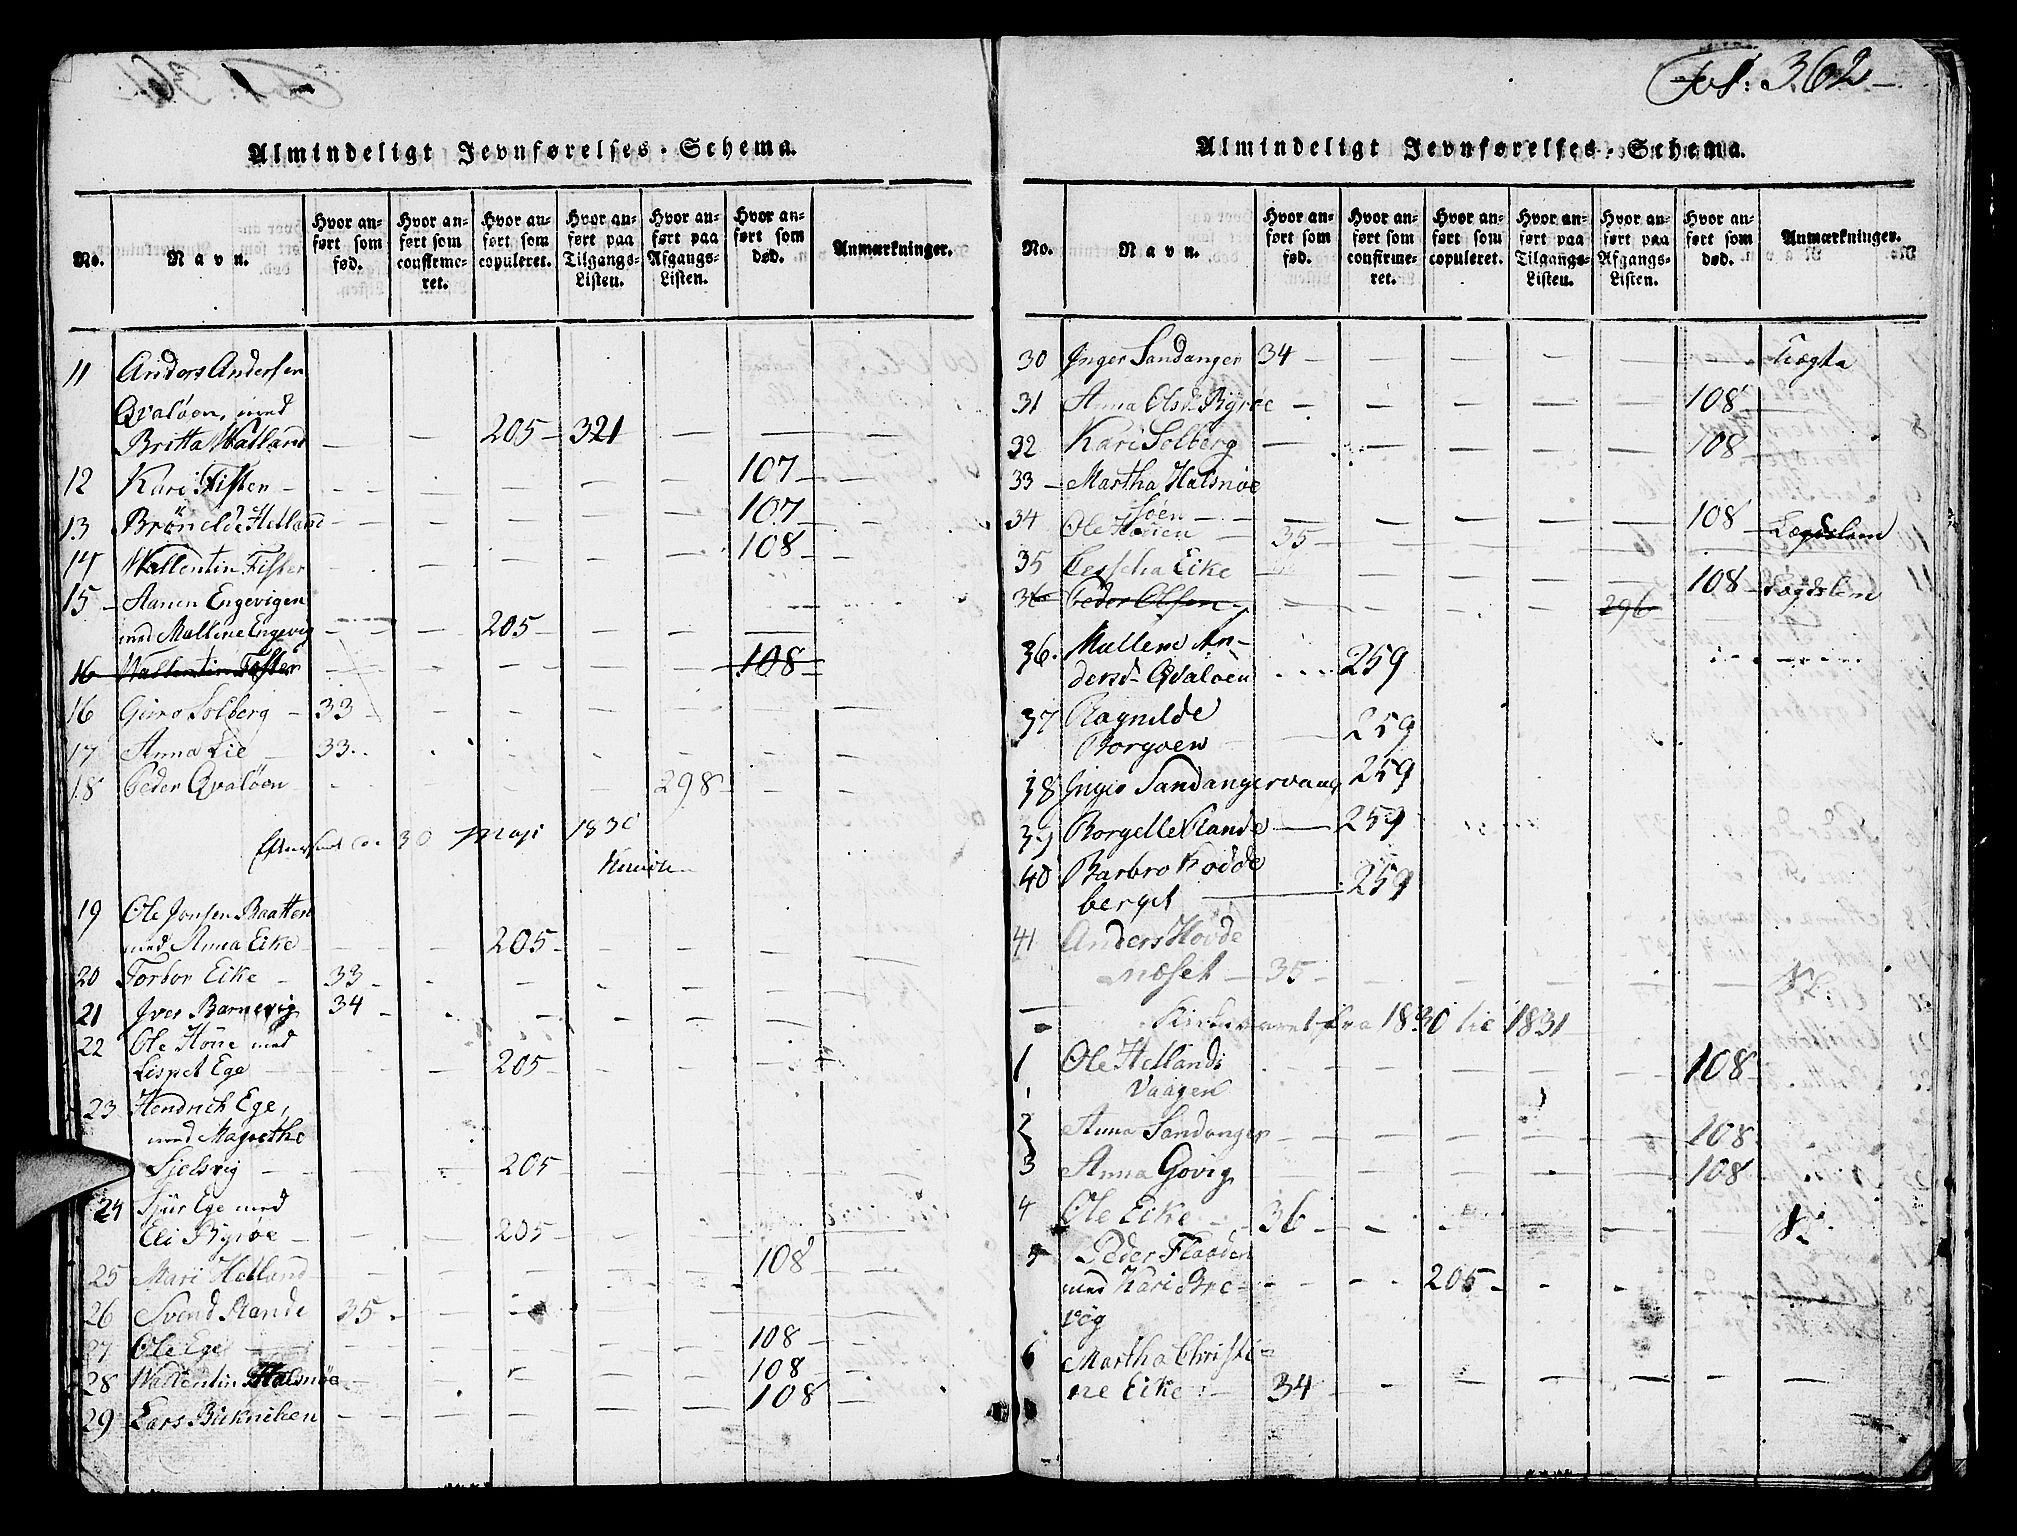 Almindeligt Jevnførelses-Schema.
No. Navn. Hvor anført som fød. Hvor anført som confirmeret. Hvor anført som copuleret. Hvor anført paa Tilgangs-Listen. Hvor anført paa Afgangs-Listen. Hvor anført som død. Anmærkninger.
11 Anders Andersen
Qvaløen, med
Britta Watland 205 321
12 Kari Fister 107
13 Brönilde Helland 107
14 Wallentin Fister 108
15 Hanen Engevigen
med Mallene Engevig 205
16 Wallentin Fister 108
16 Guro Solberg 33
17 Anna Lie 33
18 Peder Qvaløen 298
30 Maji 1830
19 Ole Jonsen Baatten
med Anna Eike 205
20 Torbor Eike 33
21 Iver Barnevig 34
22 Ole Höiie med
Lispet Ege 205
23 Hendrich Ege,
med Magrethe
Sjelsvig 205
24 Sjur Ege med
Eli Byrøe 205
25 Mari Helland 108
26 Svend Rande 35
27 Ole Ege 108
28 Wallentin Halsnøe 108
29 Lars Bukniben 108
Fol: 362
Almindeligt Jevnførelses-Schema.
No. Navn. Hvor anført som fød. Hvor anført som confirmeret. Hvor anført som copuleret. Hvor anført paa Tilgangs-Listen. Hvor anført paa Afgangs-Listen. Hvor anført som død. Anmærkninger.
30 Inger Sandanger 34 Uægta
31 Anna Olsd. Byrøe 108
32 Kari Solberg 108
33 Martha Halsnøe
søen 108 Lægdslem
34 Ole Höiien 35
35 Cesselia Eike 108 Lægdslem
36 Peder Olsen 296
36. Mallene An-
dersd. Qvaløen 259
37 Ragnilde
Borgøen 259
38 Inger Sandangervaag 259
39 Borgelle Rande 259
40 Barbro Kodde
berget 259
41 Anders Hovde
næset 35
Kirkeaaret fra 1830 til 1831
1 Ole Hellands
Vaagen 108
2 Anna Sandanger 108
3 Anna Govig 108
4 Ole Eike 36
5 Peder Flaaden
med Kari Bre-
vig 205
6 Martha Christi-
ne Eike 34